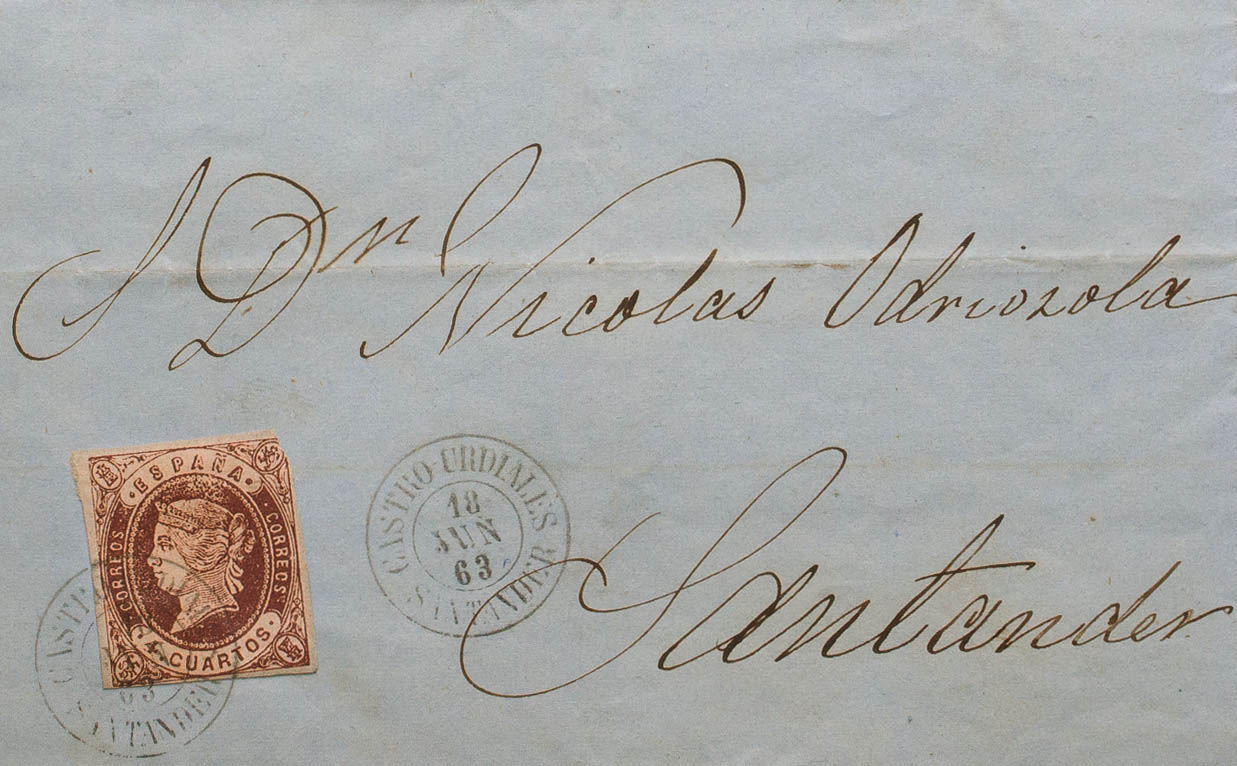 A Dn Nicolas Odriozola
Santander
ESPAÑA
CORREOS
CORREOS
4 CUARTOS.
CASTRO-URDIALES
18
JUN
63
SANTANDER
CASTR
63
SANTANDER